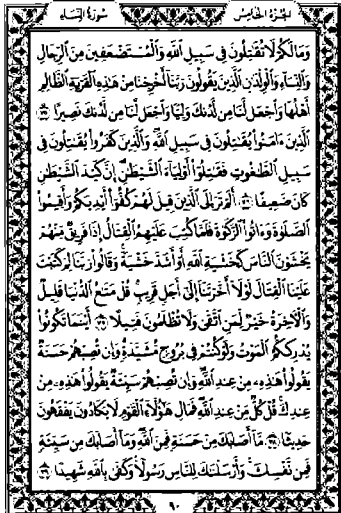 الجزء الخامس
سورة النساء
وَمَا لَكُمْ لَا تُقَٰتِلُونَ فِى سَبِيلِ ٱللَّهِ وَٱلْمُسْتَضْعَفِينَ مِنَ ٱلرِّجَالِ
وَٱلنِّسَآءِ وَٱلْوِلْدَٰنِ ٱلَّذِينَ يَقُولُونَ رَبَّنَآ أَخْرِجْنَا مِنْ هَٰذِهِ ٱلْقَرْيَةِ ٱلظَّالِمِ
أَهْلُهَا وَٱجْعَل لَّنَا مِن لَّدُنكَ وَلِيًّا وَٱجْعَل لَّنَا مِن لَّدُنكَ نَصِيرًا ٧٥
ٱلَّذِينَ ءَامَنُوا۟ يُقَٰتِلُونَ فِى سَبِيلِ ٱللَّهِ وَٱلَّذِينَ كَفَرُوا۟ يُقَٰتِلُونَ فِى
سَبِيلِ ٱلطَّٰغُوتِ فَقَٰتِلُوٓا۟ أَوْلِيَآءَ ٱلشَّيْطَٰنِ إِنَّ كَيْدَ ٱلشَّيْطَٰنِ
كَانَ ضَعِيفًا ٧٦ أَلَمْ تَرَ إِلَى ٱلَّذِينَ قِيلَ لَهُمْ كُفُّوٓا۟ أَيْدِيَكُمْ وَأَقِيمُوا۟
ٱلصَّلَوٰةَ وَءَاتُوا۟ ٱلزَّكَوٰةَ فَلَمَّا كُتِبَ عَلَيْهِمُ ٱلْقِتَالُ إِذَا فَرِيقٌ مِّنْهُمْ
يَخْشَوْنَ ٱلنَّاسَ كَخَشْيَةِ ٱللَّهِ أَوْ أَشَدَّ خَشْيَةً وَقَالُوا۟ رَبَّنَا لِمَ كَتَبْتَ
عَلَيْنَا ٱلْقِتَالَ لَوْلَآ أَخَّرْتَنَآ إِلَىٰٓ أَجَلٍ قَرِيبٍ قُلْ مَتَٰعُ ٱلدُّنْيَا قَلِيلٌ
وَٱلْءَاخِرَةُ خَيْرٌ لِّمَنِ ٱتَّقَىٰ وَلَا تُظْلَمُونَ فَتِيلًا ٧٧ أَيْنَمَا تَكُونُوا۟
يُدْرِككُّمُ ٱلْمَوْتُ وَلَوْ كُنتُمْ فِى بُرُوجٍ مُّشَيَّدَةٍ وَإِن تُصِبْهُمْ حَسَنَةٌ
يَقُولُوا۟ هَٰذِهِۦ مِنْ عِندِ ٱللَّهِ وَإِن تُصِبْهُمْ سَيِّئَةٌ يَقُولُوا۟ هَٰذِهِۦ مِنْ
عِندِكَ قُلْ كُلٌّ مِّنْ عِندِ ٱللَّهِ فَمَالِ هَٰٓؤُلَآءِ ٱلْقَوْمِ لَا يَكَادُونَ يَفْقَهُونَ
حَدِيثًا ٧٨ مَّآ أَصَابَكَ مِنْ حَسَنَةٍ فَمِنَ ٱللَّهِ وَمَآ أَصَابَكَ مِن سَيِّئَةٍ
فَمِن نَّفْسِكَ وَأَرْسَلْنَٰكَ لِلنَّاسِ رَسُولًا وَكَفَىٰ بِٱللَّهِ شَهِيدًا ٧٩
٩٠